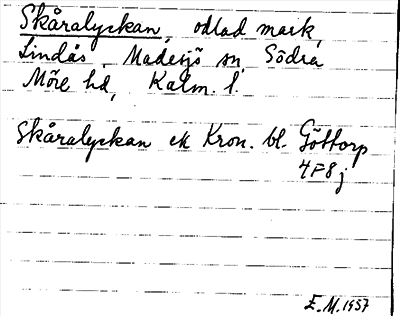 Skåralyckan, odlad mark,
Lindås, Madesjö sn, Södra
Möre hd, Kalm. l.
Skåralyckan ek Kron. bl. Göttorp
4F8j
E.M. 1957